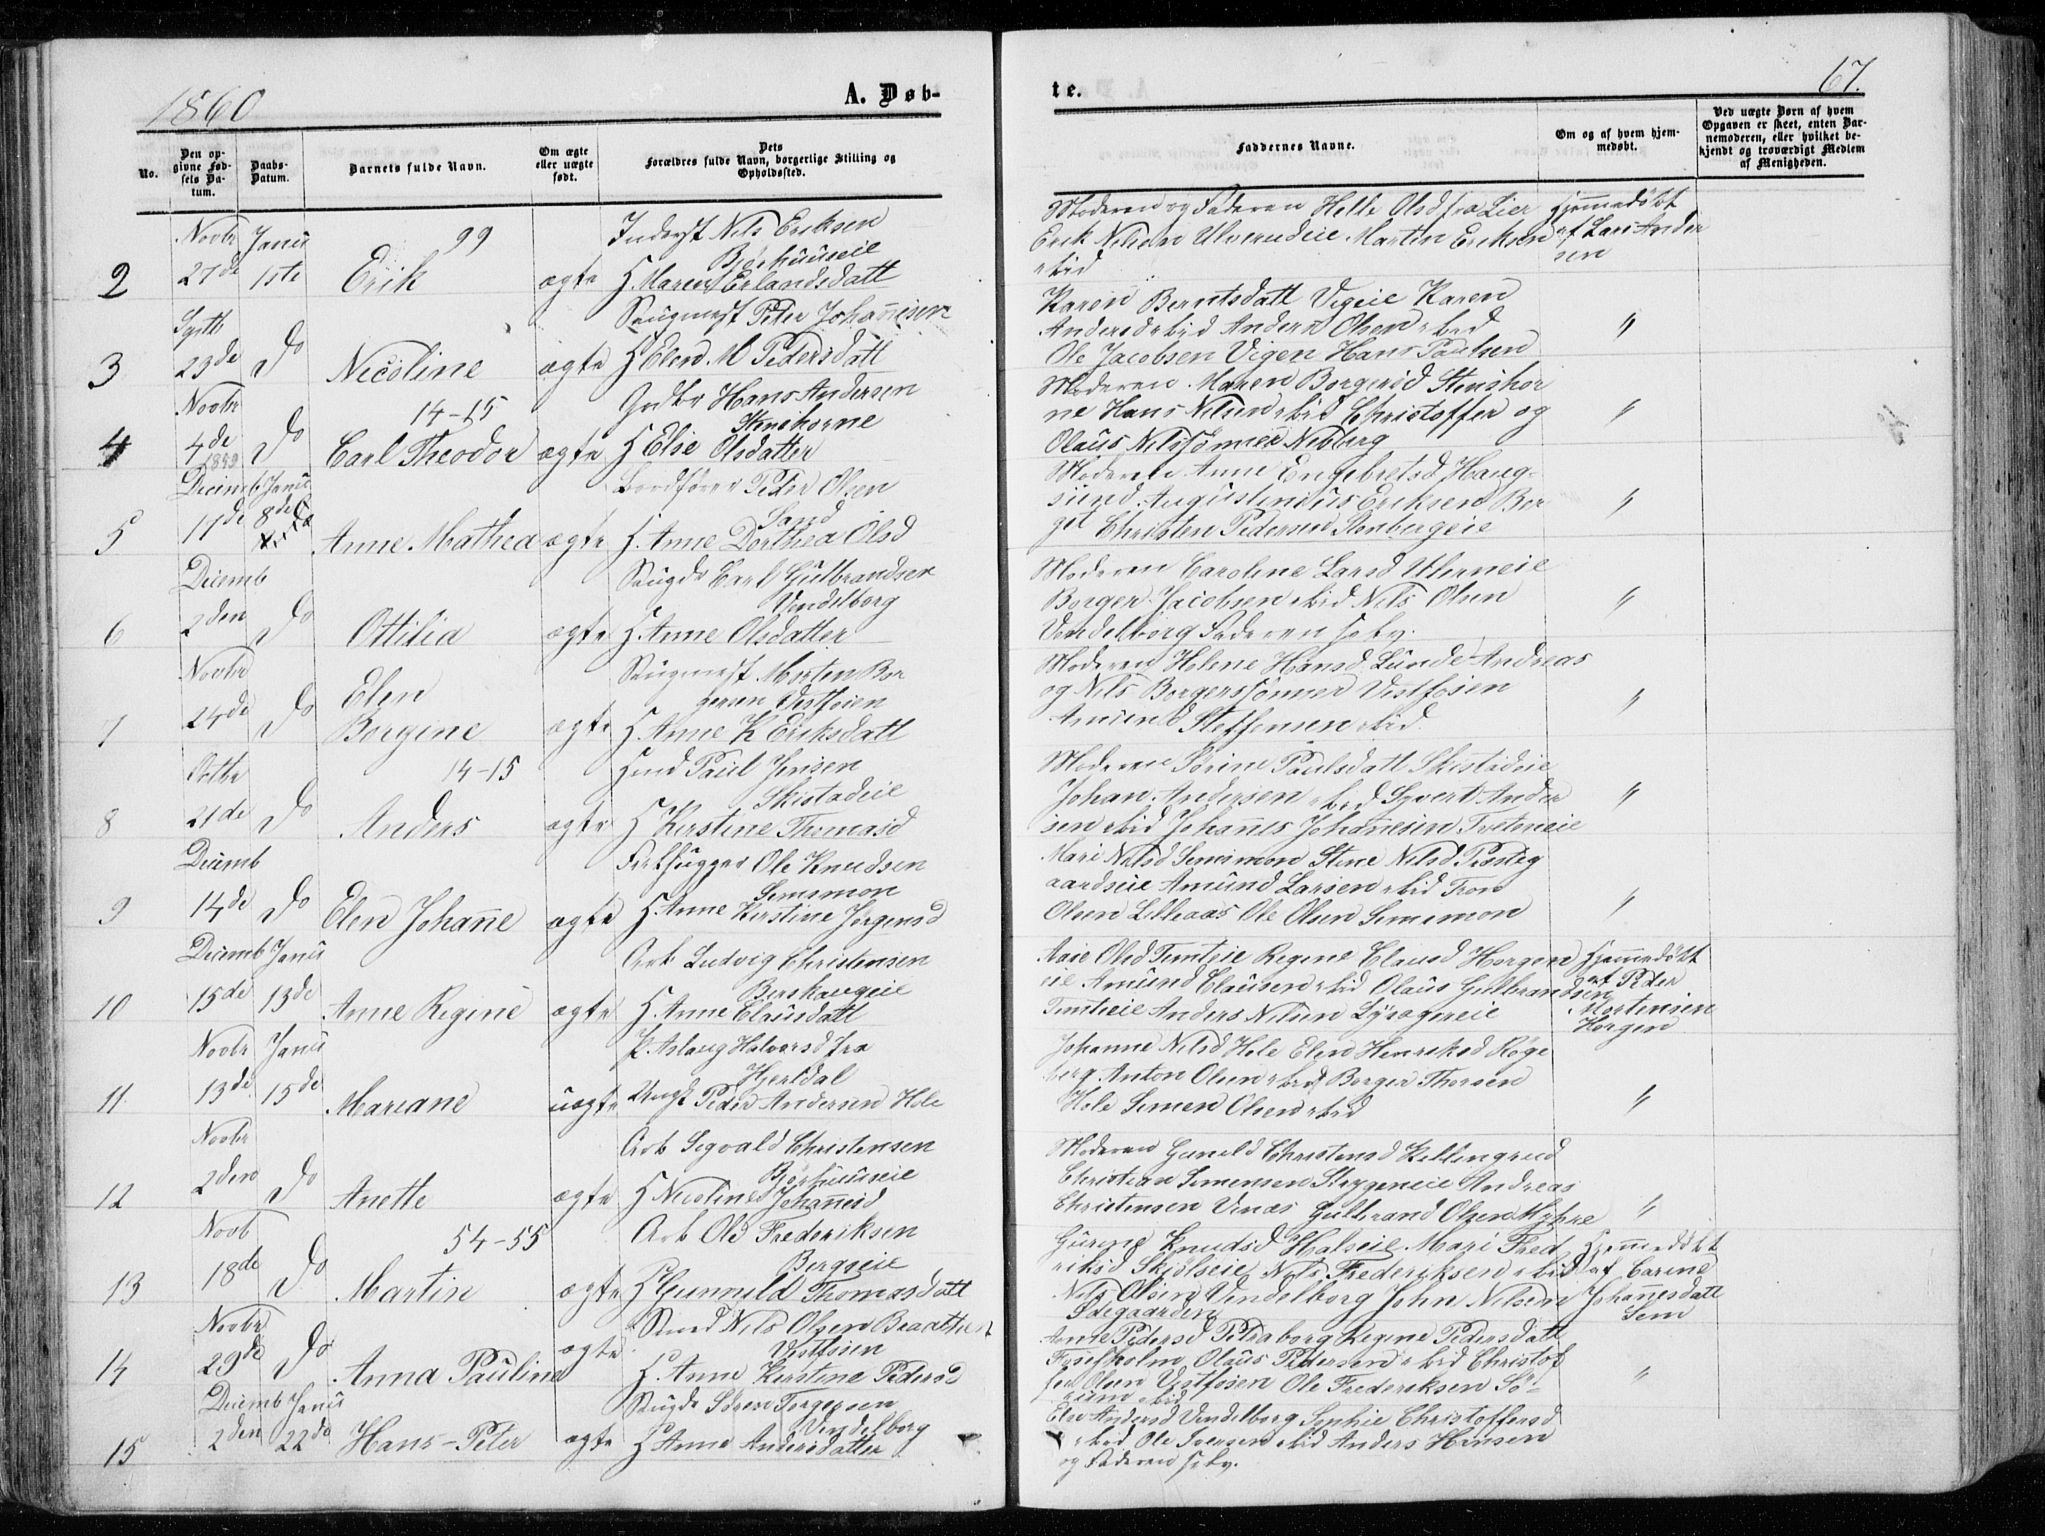 1860
A. Døb-
te.
67.
No.
Den op-
givne Fød-
sels Da-
tum.
Daabs-
Datum.
Barnets fulde Navn.
Om ægte
eller uægte
født.
Dets
Forældres fulde Navn, borgerlige Stilling og
Opholdssted.
Faddernes Navne.
Om og af hvem hjem-
medøbt.
Ved uægte Børn af hvem
Opgaven er skeet, enten Bar-
nemoderen, eller hvilket be-
kjendt og troværdigt Medlem
af Menigheden.
2
Novbr
27de
Januu
1ste
99
Erik
ægte
Inderst Nils Eriksen
Bjørhuuseie
H Maren Erlandsdatt
Moderen og Faderen Helle Olsd fra Lier
Erik Nilsen Ulverudeie Martin Eriksen
ibid
Hjemmedöbt
af Lars Ander
sen
3
Septb
23de
Do
Nicoline
ægte
Saugmest Peter Johannesen
H Elen M Pedersdatt
Karen Berntsdatt Vegeie Karen
Andersd ibid Anders Olsen ibid
Ole Jacobsen Vegen Hans Paulsen
"
4
Novbr
4de
1859
Do
14-15
Carl Theodor
ægte
Gndbr Hans Andersen
Stenshorne
H Else Olsdatter
Moderen Maren Borgersd Stenshor
ne Hans Nilsen ibid Christoffer og
Olaus Nilssønner Neberg
"
5
Decemb
17de
Januu
8de
Anne Mathea
ægte
Bordfører Peder Olsen
Sand
H. Anne Dorthea Olsd
Moderen Anne Engebretsd Haug-
sund Augustinius Eriksen Bor
get Christen Pedersen Stenbergeie
"
6
Decemb
2den
Do
Ottilia
ægte
Saugds Carl Gulbrandsen
Vendelborg
H. Anne Olsdatter
Moderen Caroline Larsd Ulerneie
Borger Jacobsen ibid Nils Olsen
Vendelborg Faderen selv.
"
7
Novbr
24de
Do
Elen
Borgine
ægte
Saugmest Morten Bor
gersen Vestfosen
H. Anne K Eriksdatt
Moderen Helene Hansd Lunde Andreas
og Nils Borgerssønner Vestfosen
Amund Steffensen ibid.
"
8
Octbr
21de
Do
14-15
Anders
ægte
Huusmd Paul Jensen
Skistadeie
H Kirstine Thomasd
Moderen Sørine Paulsdatt Skistadeie
Johan Andersen ibid Syvert Ander
sen ibid Johannes Johannesen Tveteneie
"
9
Decemb
14de
Do
Elen Johanne
ægte
Ole Knudsen
Semsmoen
H. Anne Kirstine Jørgensd
Mari Nilsd Semsmoen Stine Nilsd Presteg
aardseie Amund Larsen ibid Tron
Olsen Lillaas Ole Olsen Semsmoen
"
10
Decemb
15de
Januu
13de
Anne Regine
ægte
Arb Ludvig Christensen
Berskaugeie
H. Anne Clausdatt
Aase Olsd Temteie Regine Clausd Horgen
eie Amund Clausen ibid Olaus Gulbrandsen
Temteie Anders Nilsen Lysagereie
Hjemmedöbt
af Peder
Mortensen
Horgen
11
Novbr
13de
Januu
15de
Mariane
uægte
P. Aslaug Halvorsd fra
Hjertdal
Ungk Peder Andersen Hole
Johanne Nilsd Hole Elen Henriksd Røge
berg Anton Olsen ibid Borger Thorsen
Hole Semen Olsen ibid
"
12
Novbr
2den
Do
Anette
ægte
Arb Segvald Christensen
Bjørhuuseie
H Nicoline Johannesd
Moderen Gunild Christensd Kellingrud
Christian Semensen Strygeneie Andreas
Christensen Vinæs Gulbrand Olsen Myhre
"
13
Novb
18de
Do
54-55
Martin
ægte
Arb Ole Frederiksen
Bergseie
H Gunnild Thomasdatt
Gurine Knudsd Halseie Mari Fred
riksd Skjölseie Nils Frederiksen ibid
Nils Olsen Vendelborg John Nilsen
Ødegaarden
Hjemmedöbt
af Carine
Johannesdatt
Sem
14
Novbr
29de
Do
Anna Pauline
ægte
Smed Nils Olsen Braathen
Vestfosen
H. Anne Kirstine Pedersd
Anne Pedersd Petraborg Regine Pedersdatt
Fossesholm Olaus Pedersen ibid Christof
fer Olsen Vestfosen Ole Frederiksen Sö-
ibid
"
15
Decemb
2den
Januu
22de
Hans-Peter
ægte
Saugds Sören Torgersen
Vendelborg
H Anne Andersdatter
Else Andersd Vendelborg Sophie Christoffersd
ibid Ole Iversen ibid Anders Hansen
og Faderen selv.